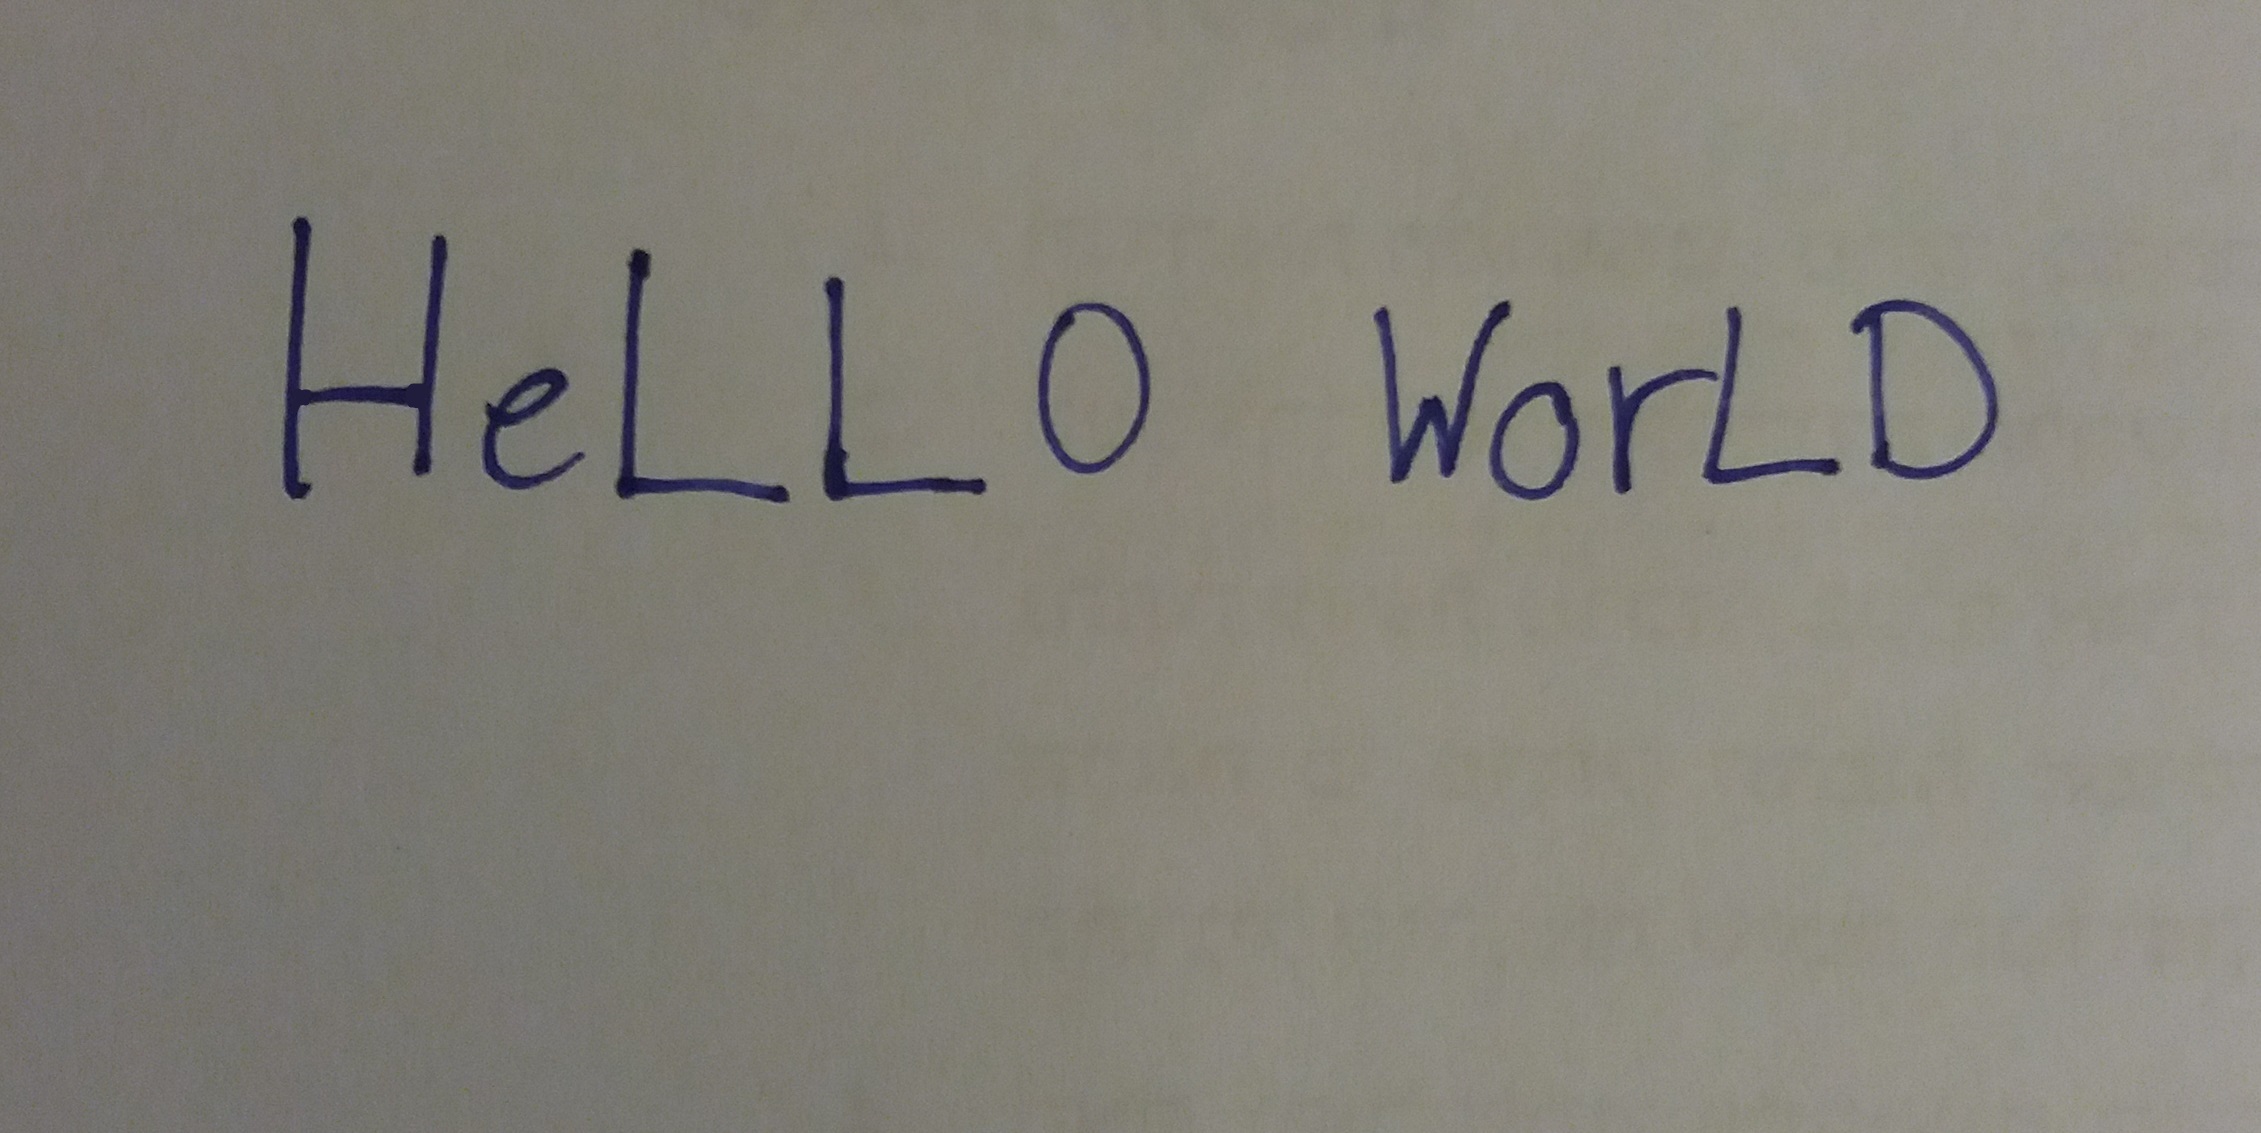 HeLLO WorLD